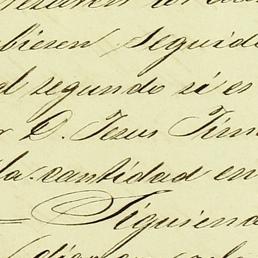 bieren seguido
segundo si es
D. Jesus Tim
la cantidad en
Siguiend